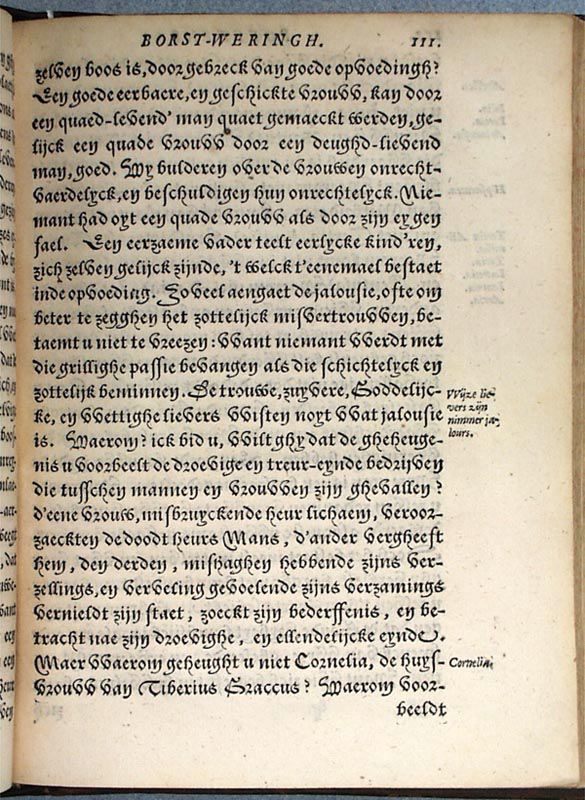 BORST-WERINGH. 111.
zelven boos is, door gebreck van goede opvoedingh?
Een goede eerbaere, en geschickte vrouw, kan door
een quaed-levend' man quaet gemaeckt werden, ge-
lijck een quade vrouw door een deughd-lievend
man, goed. Wy bulderen over de vrouwen onrecht-
vaerdelyck, en beschuldigen hun onrechtelyck. Nie-
mant had oyt een quade vrouw als door zijn eygen
fael. Een eerzaeme vader teelt eerlycke kind'ren,
zich zelven gelijck zijnde, 't welck t'eenemael bestaet
inde opvoeding. Zo veel aengaet de jalousie, ofte om
beter te zegghen het zottelijck misvertrouwen, be-
taemt u niet te vreezen: want niemant werdt met
die grillighe passie bevangen als die schichtelyck en
zottelijk beminnen. De trouwe, zuyvere, Goddelijc-
ke, en wettighe lievers wisten noyt wat jalousie
Wijze lie-
vers zijn
nimmer ja-
lours.
is. Waerom? ick bid u, wilt ghy dat de gheheuge-
nis u voorbeelt de droevige en treur-eynde bedrijven
die tusschen mannen en vrouwen zijn ghevallen?
d'eene vrouw, misbruyckende heur lichaem, veroor-
zaeckten de doodt heurs Mans, d'ander vergheeft
hem, den derden, mishaghen hebbende zijns ver-
zellings, en verveling gevoelende zijns verzamings
vernieldt zijn staet, zoeckt zijn bederffenis, en be-
tracht nae zijn droevighe, en ellendelijcke eynde.
Maer waerom geheught u niet Cornelia, de huys-
Cornelia.
vrouw van Tiberius Graccus? Waerom voor-
beeldt